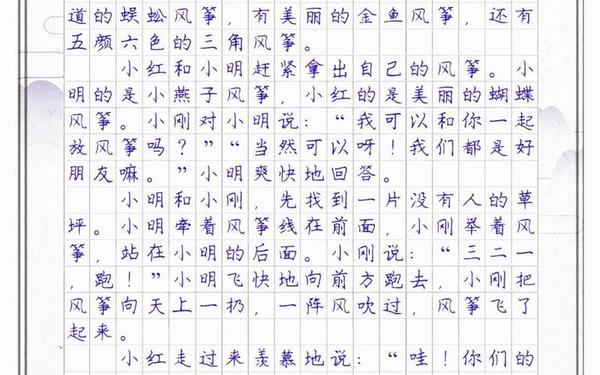 道的蜈蚣风筝，有美丽的金鱼风筝，还有
五颜六色的三角风筝。
小红和小明赶紧拿出自己的风筝。小
明的是小燕子风筝，小红的是美丽的蝴蝶
风筝。小刚对小明说：“我可以和你一起
放风筝吗？”“当然可以呀！我们都是好
朋友嘛。”小明爽快地回答。
小明和小刚，先找到一片没有人的草
坪。小明牵着风筝线在前面，小刚举着风
筝，站在小明的后面。小刚说：“三二一
，跑！”小明飞快地向前方跑去，小刚把
风筝向天上一扔，一阵风吹过，风筝飞了
起来。
小红走过来羡慕地说：“哇！你们的